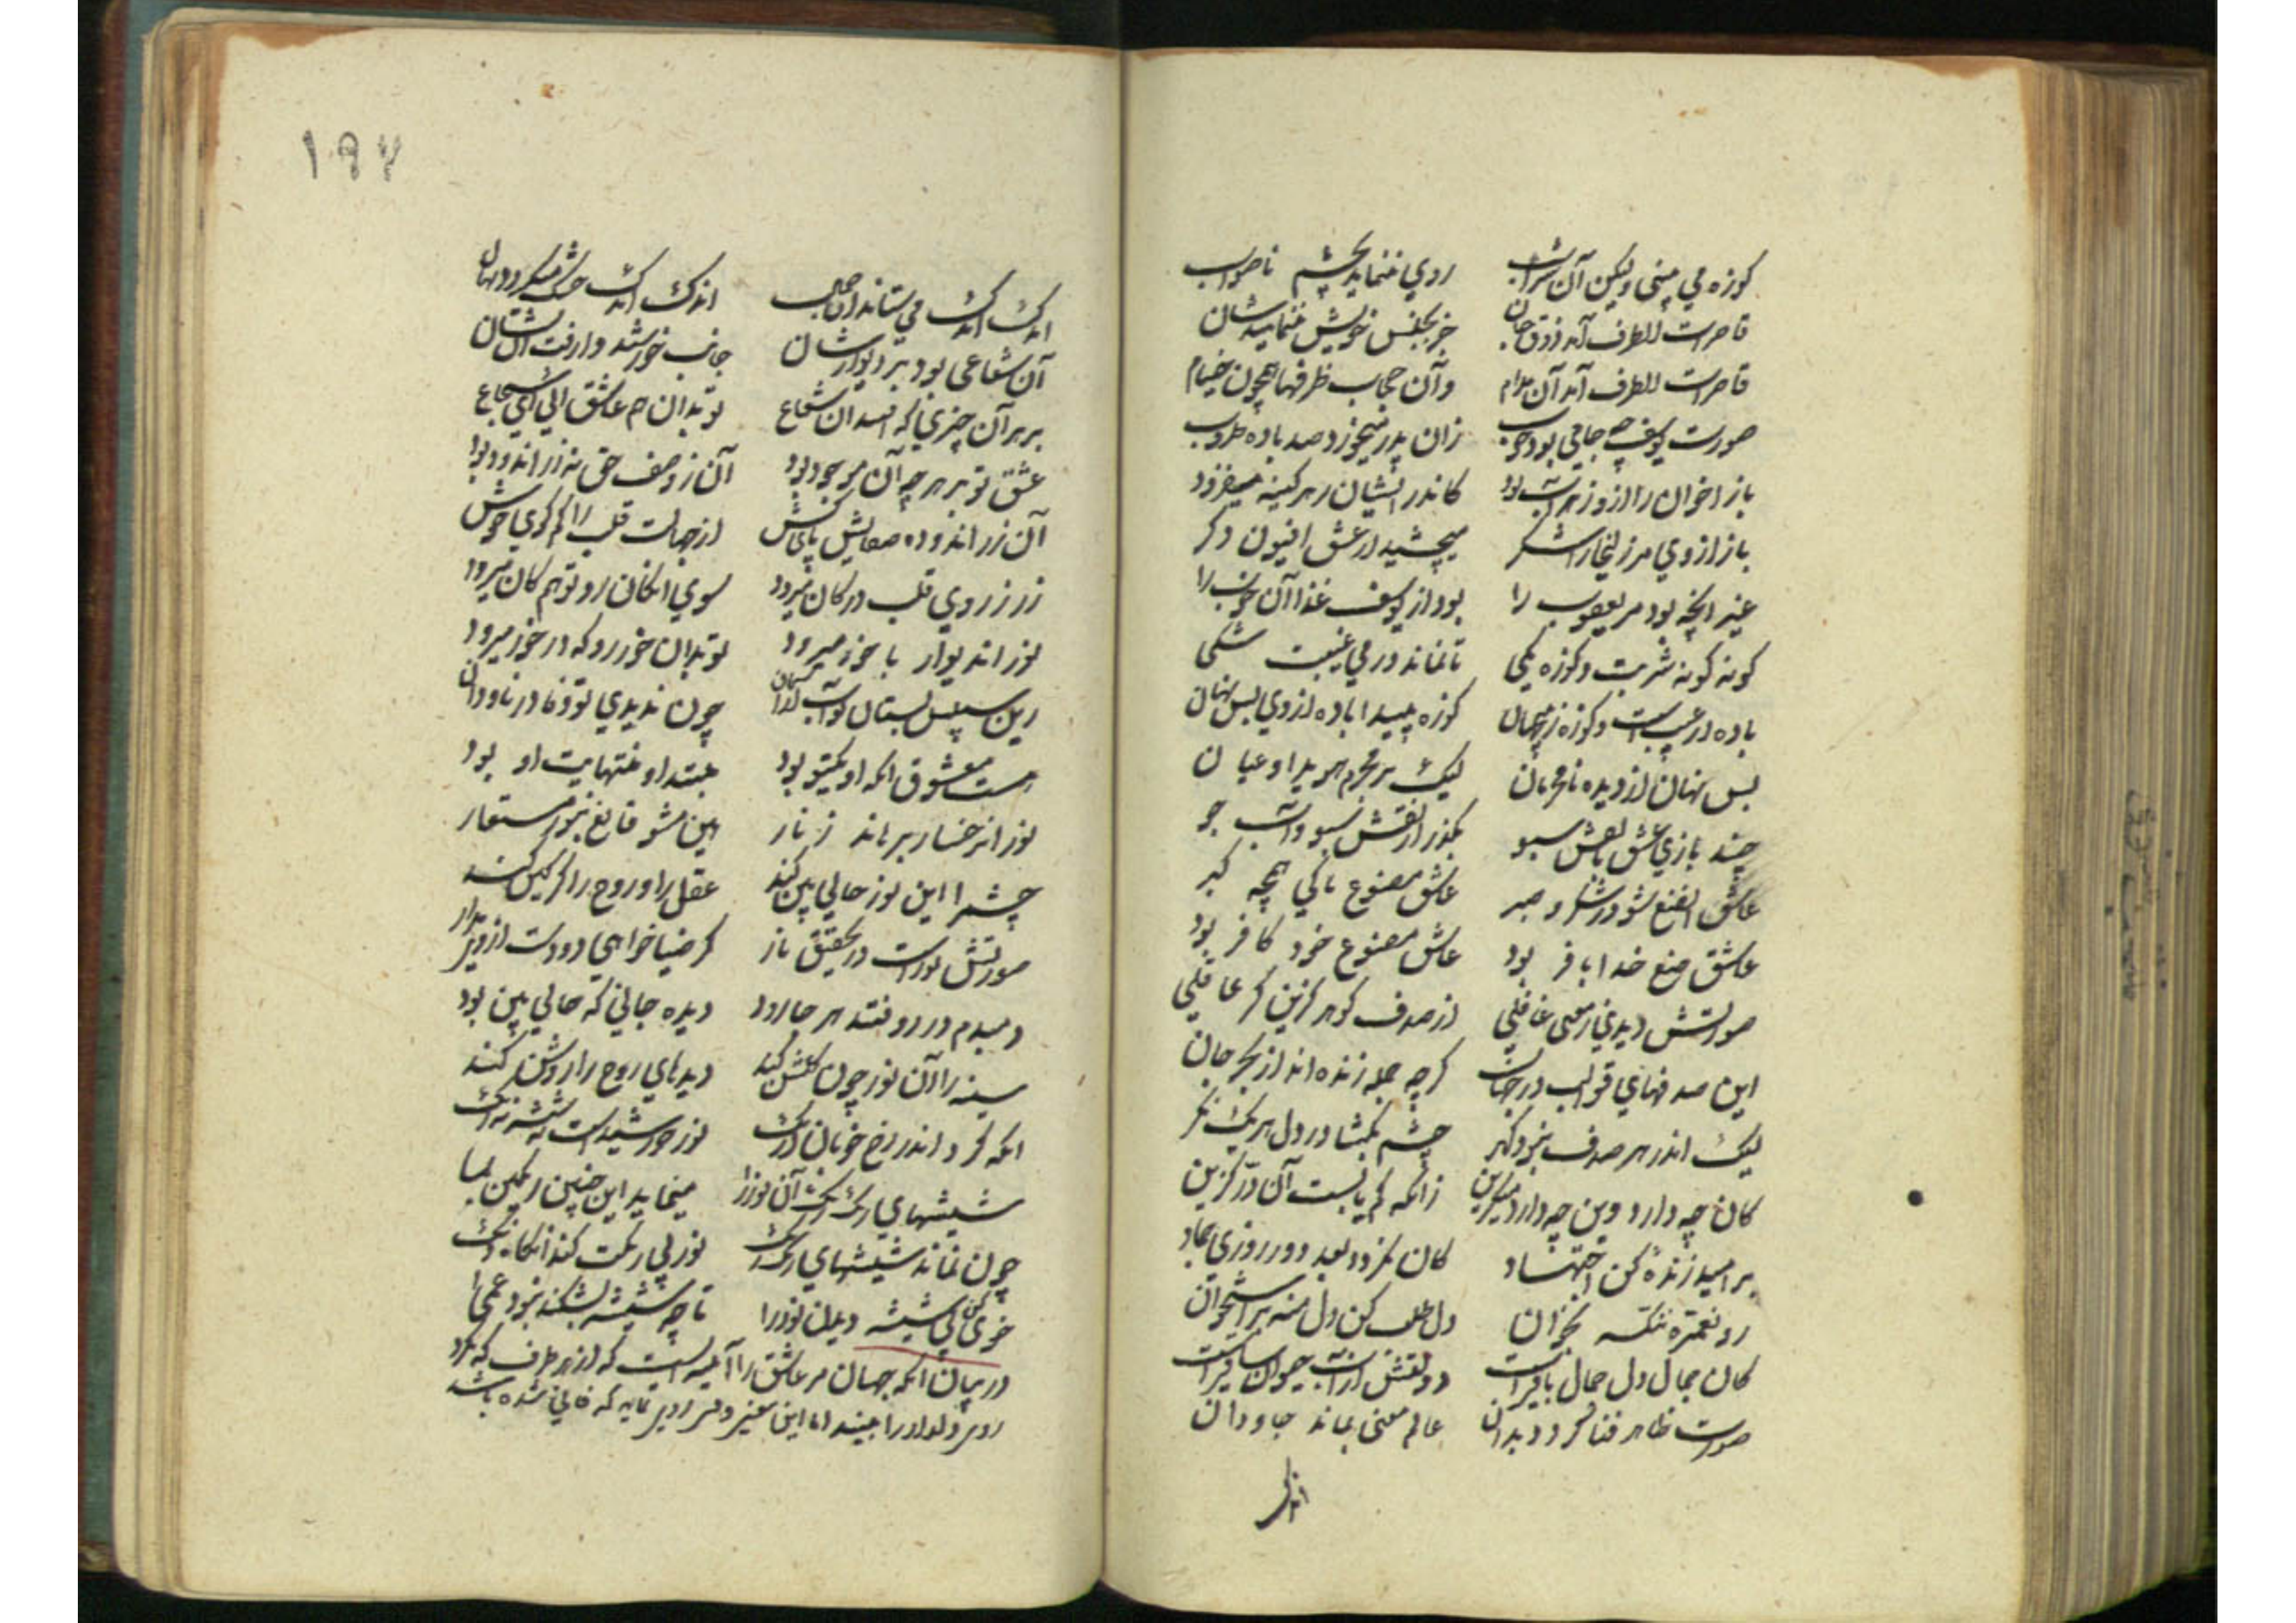 کوزه می بینی ولیکن آن شراب روی ننماید بچشم ناصواب
قاصرات الطرف آمد ذوق جان جز بجنس خویش ننماید نشان
قاصرات الطرف آمد آن مدام وآن حجاب ظرفها همچون خیام
صورت یوسف چو جامی بود خوب زان پدر میخورد صد باده طروب
باز اخوان را ازو زهراب بود کاندر ایشان زهر کینه میفزود
باز از وی مر زلیخا را شکر میچشید از عشق افیون دکر
غیر آنچه بود مر یعقوب را بود از یوسف غذا آن خوب را
کونه کونه شربت و کوزه یکی تا نماند در می غیبت شکی
باده از غیبست و کوزه زین جهان کوزه پیدا باده از وی بس نهان
بس نهان از دیده نامحرمان لیک بر محرم هویدا و عیان
چند بازی عشق با نقش سبو بکذر از نقش سبو و آب جو
عاشق صنع تو در شکر و صبر عاشق مصنوع باکی همچه کبر
عاشق صنع خدا بافر بود عاشق مصنوع خود کافر بود
صورتش دیدی ز معنی غافلی از صدف کوهر کزین کر عاقلی
این صدفهای قوالب در جهان کرچه جمله زنده اند از بحر جان
لیک اندر هر صدف نبود کهر چشم بکشا در دل هر یک نکر
کان چه دارد وین چه دارد میکزین زانکه کم یابست آن در کزین
بر امید زنده کن اجتهاد کان نکردد بعد دو روزی جماد
رو نعمره ننکسه بخوان دل طلب کن دل منه بر استخوان
کان جمال دل جمال باقیست دولتش از آب حیوان ساقیست
صورت ظاهر فنا کردد بدان عالم معنی بماند جاودان
اندک
۱۹۷
اندک اندک می ستاند آن جمال اندک اندک خشک میکردد نهال
آن شعاعی بود بر دیوارشان جانب خورشید وارفت آن نشان
بر هر آن چیزی که افتد آن شعاع تو بدان هم عاشق آیی ای شجاع
عشق تو بر هرچه آن موجود بود آن ز وصف حق نه زر اندود بود
آن زر اندوده صفاتش پاکش از جهالت قلب را کم کوی خوش
زر ز روی قلب در کان میرود سوی آن کان رو تو هم کان میرود
نور از دیوار با خور میرود تو بدان خور رو که در خور میرود
زین سپس بستان تو آب از آسمان چون ندیدی تو وفا در ناودان
هست معشوق آنکه او یکتو بود مبتدا و منتهایت او بود
نور از رخسار برهاند ز نار هین مشو قانع بنور مستعار
چشم را این نور حالی بین کند عقل را و روح را کرکین کند
صورتش نورست در تحقیق نار کر ضیا خواهی دو دست از وی بدار
دمبدم در رو فتد هر جا رود دیده جانی که حالی بین بود
سینه را آن نور چون کلشن کند دیدهای روح را روشن کند
آنکه کرد اندر رخ خوبانت دنک نور خورشیدست از شیشه سه رنک
شیشهای رنک رنک آن نور را مینماید این چنین رنکین بما
چون نماند شیشهای رنک رنک نور بی رنکت کند آنکاه دنک
خوی کن بی شیشه دیدن نور را تا چو شیشه بشکند نبود عمی
در بیان آنکه جهان مر عاشق را آئینه ایست که از هر طرف که نکرد
روی دلدار را بیند اما این معنی وقتی روی نماید که فانی شده باشد